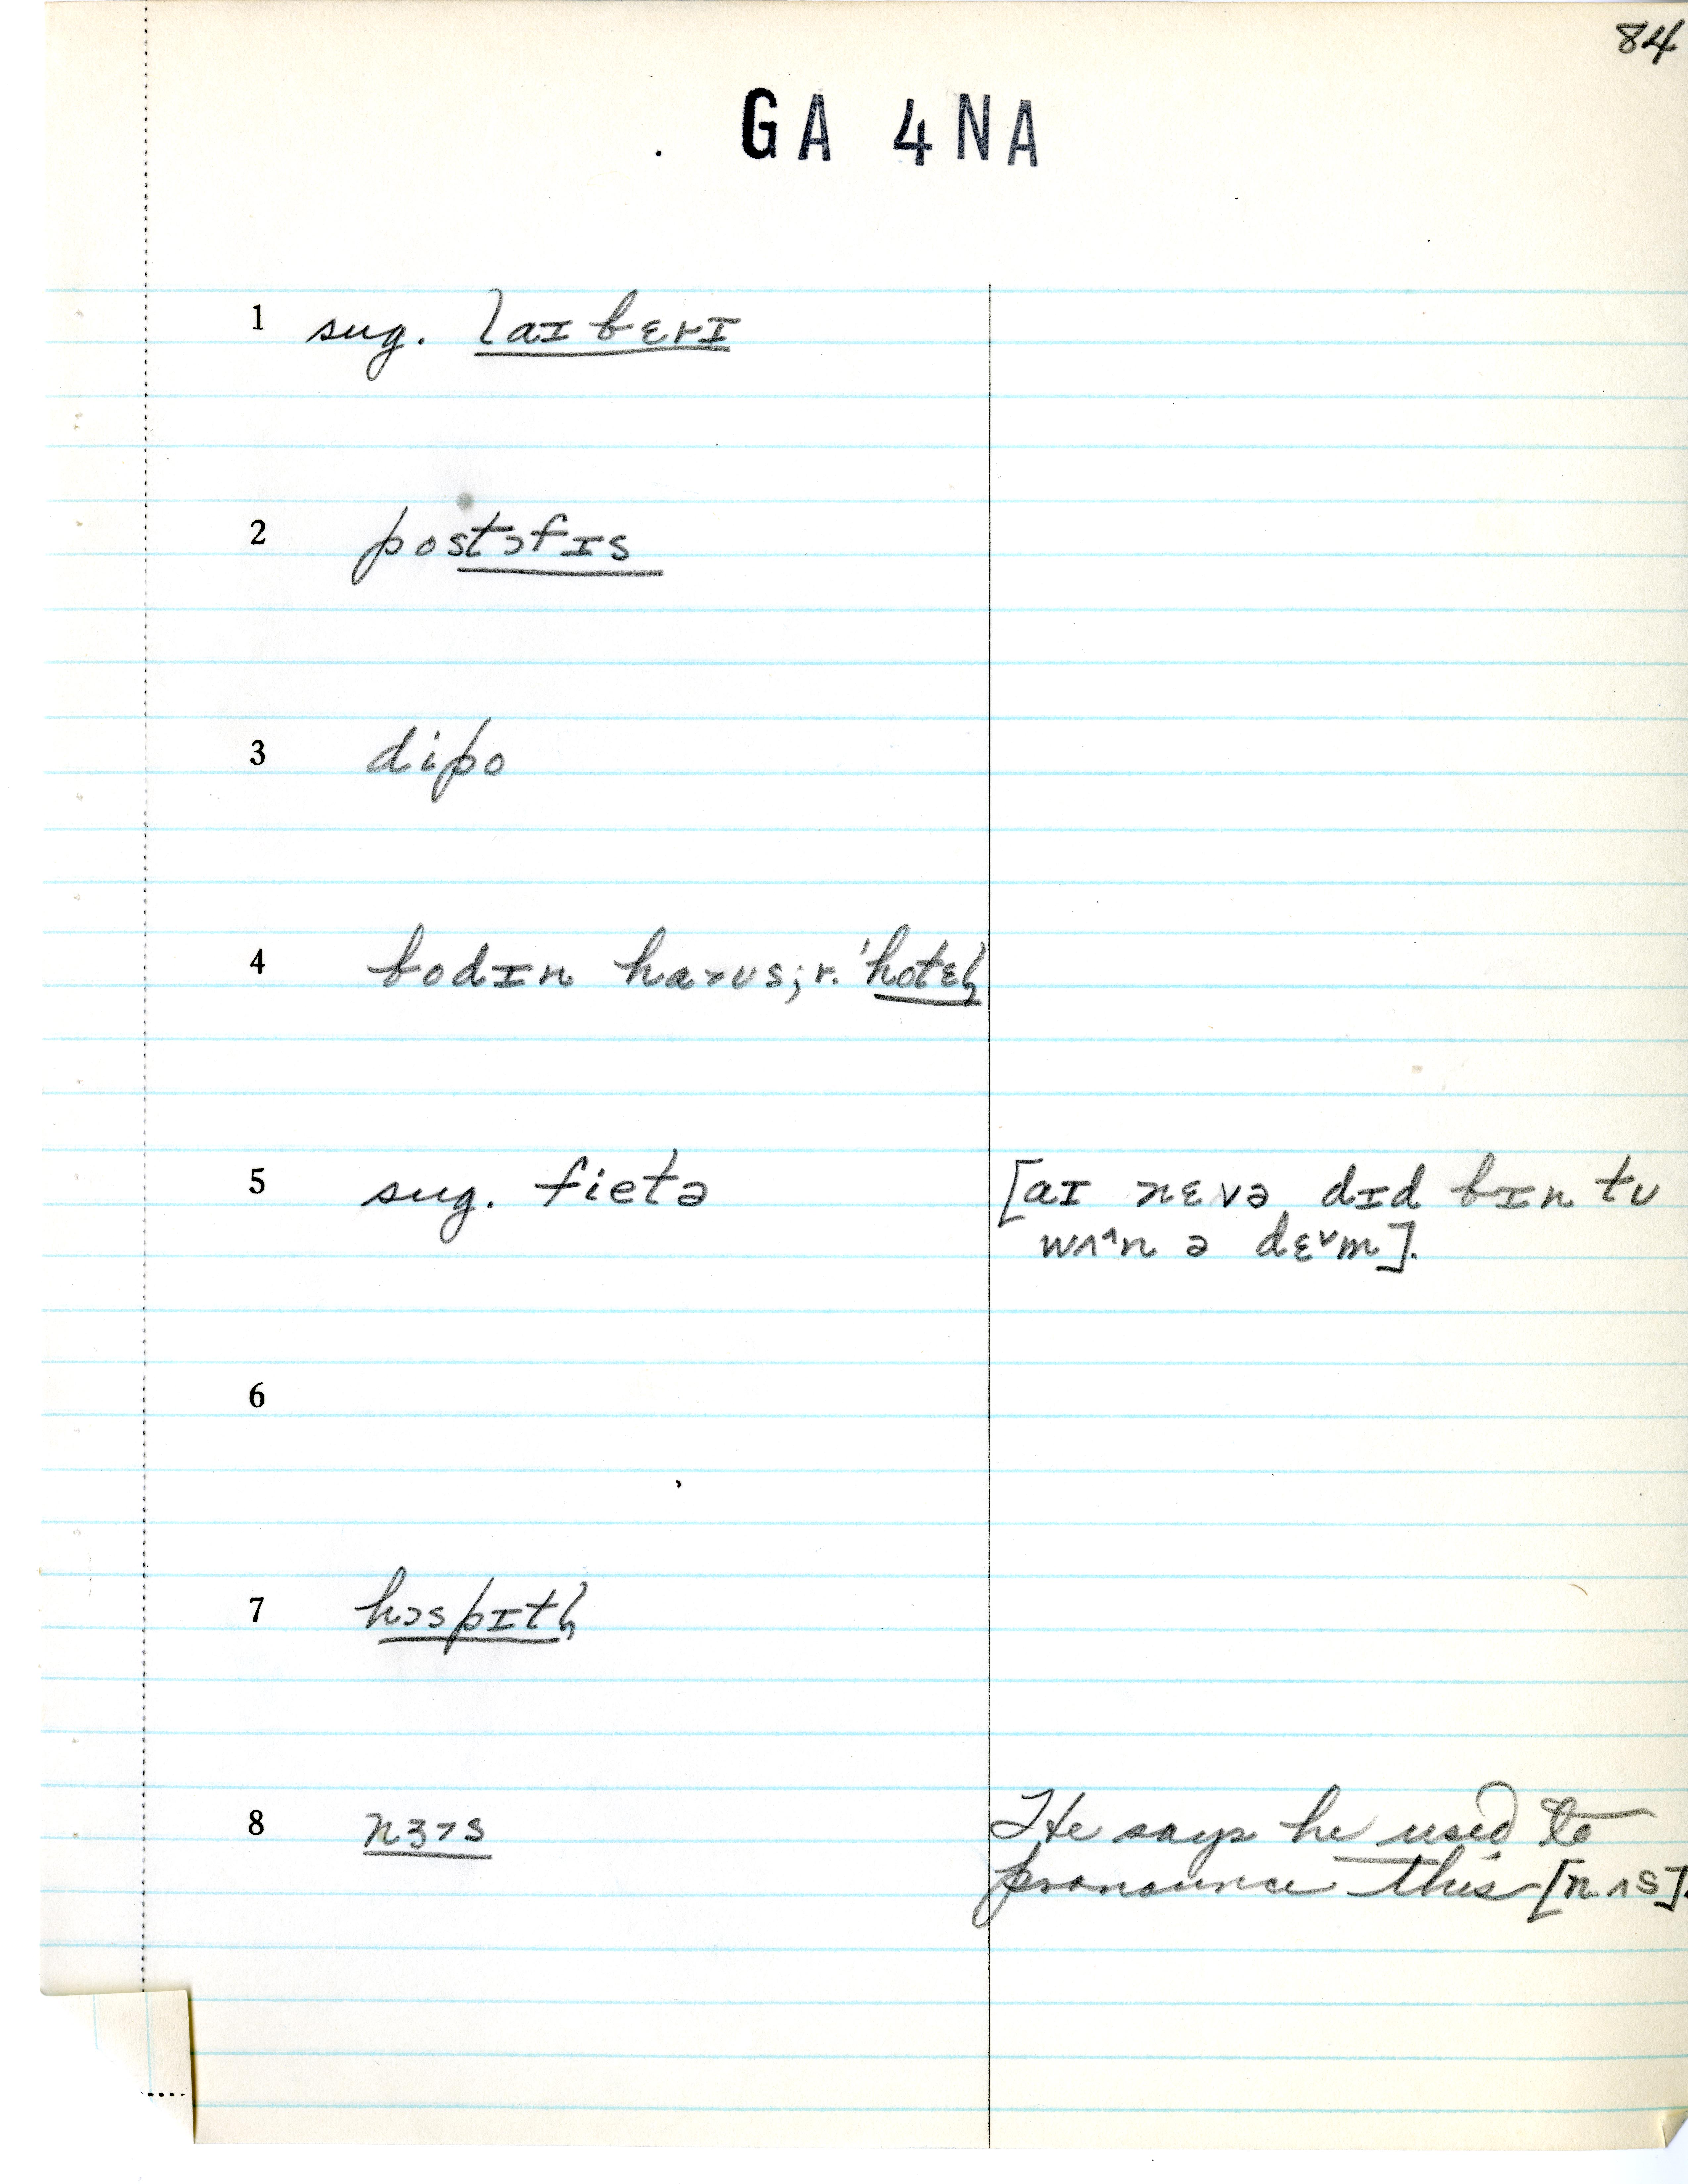 84
GA 4NA
1 sug. laɪbɛrɪ
2 postɔfɪs
3 dipo
4 bodɪn ha˃ʊs; r. 'hotɛl̩
5 sug. fietə [aɪ nɛvə dɪd bɪn tʊ
wʌ^n ə dɛ˅m].
6
7 hɔspɪtl̩
8 nɜ˃s He says he used to
pronounce this [nʌs].